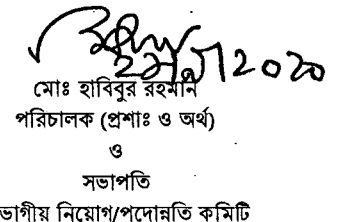 মোঃ হাবিবুর রহমান
পরিচালক (প্রশাঃ ও অর্থ)
ও
সভাপতি
ভাগীয় নিয়োগ/পদোন্নতি কমিটি